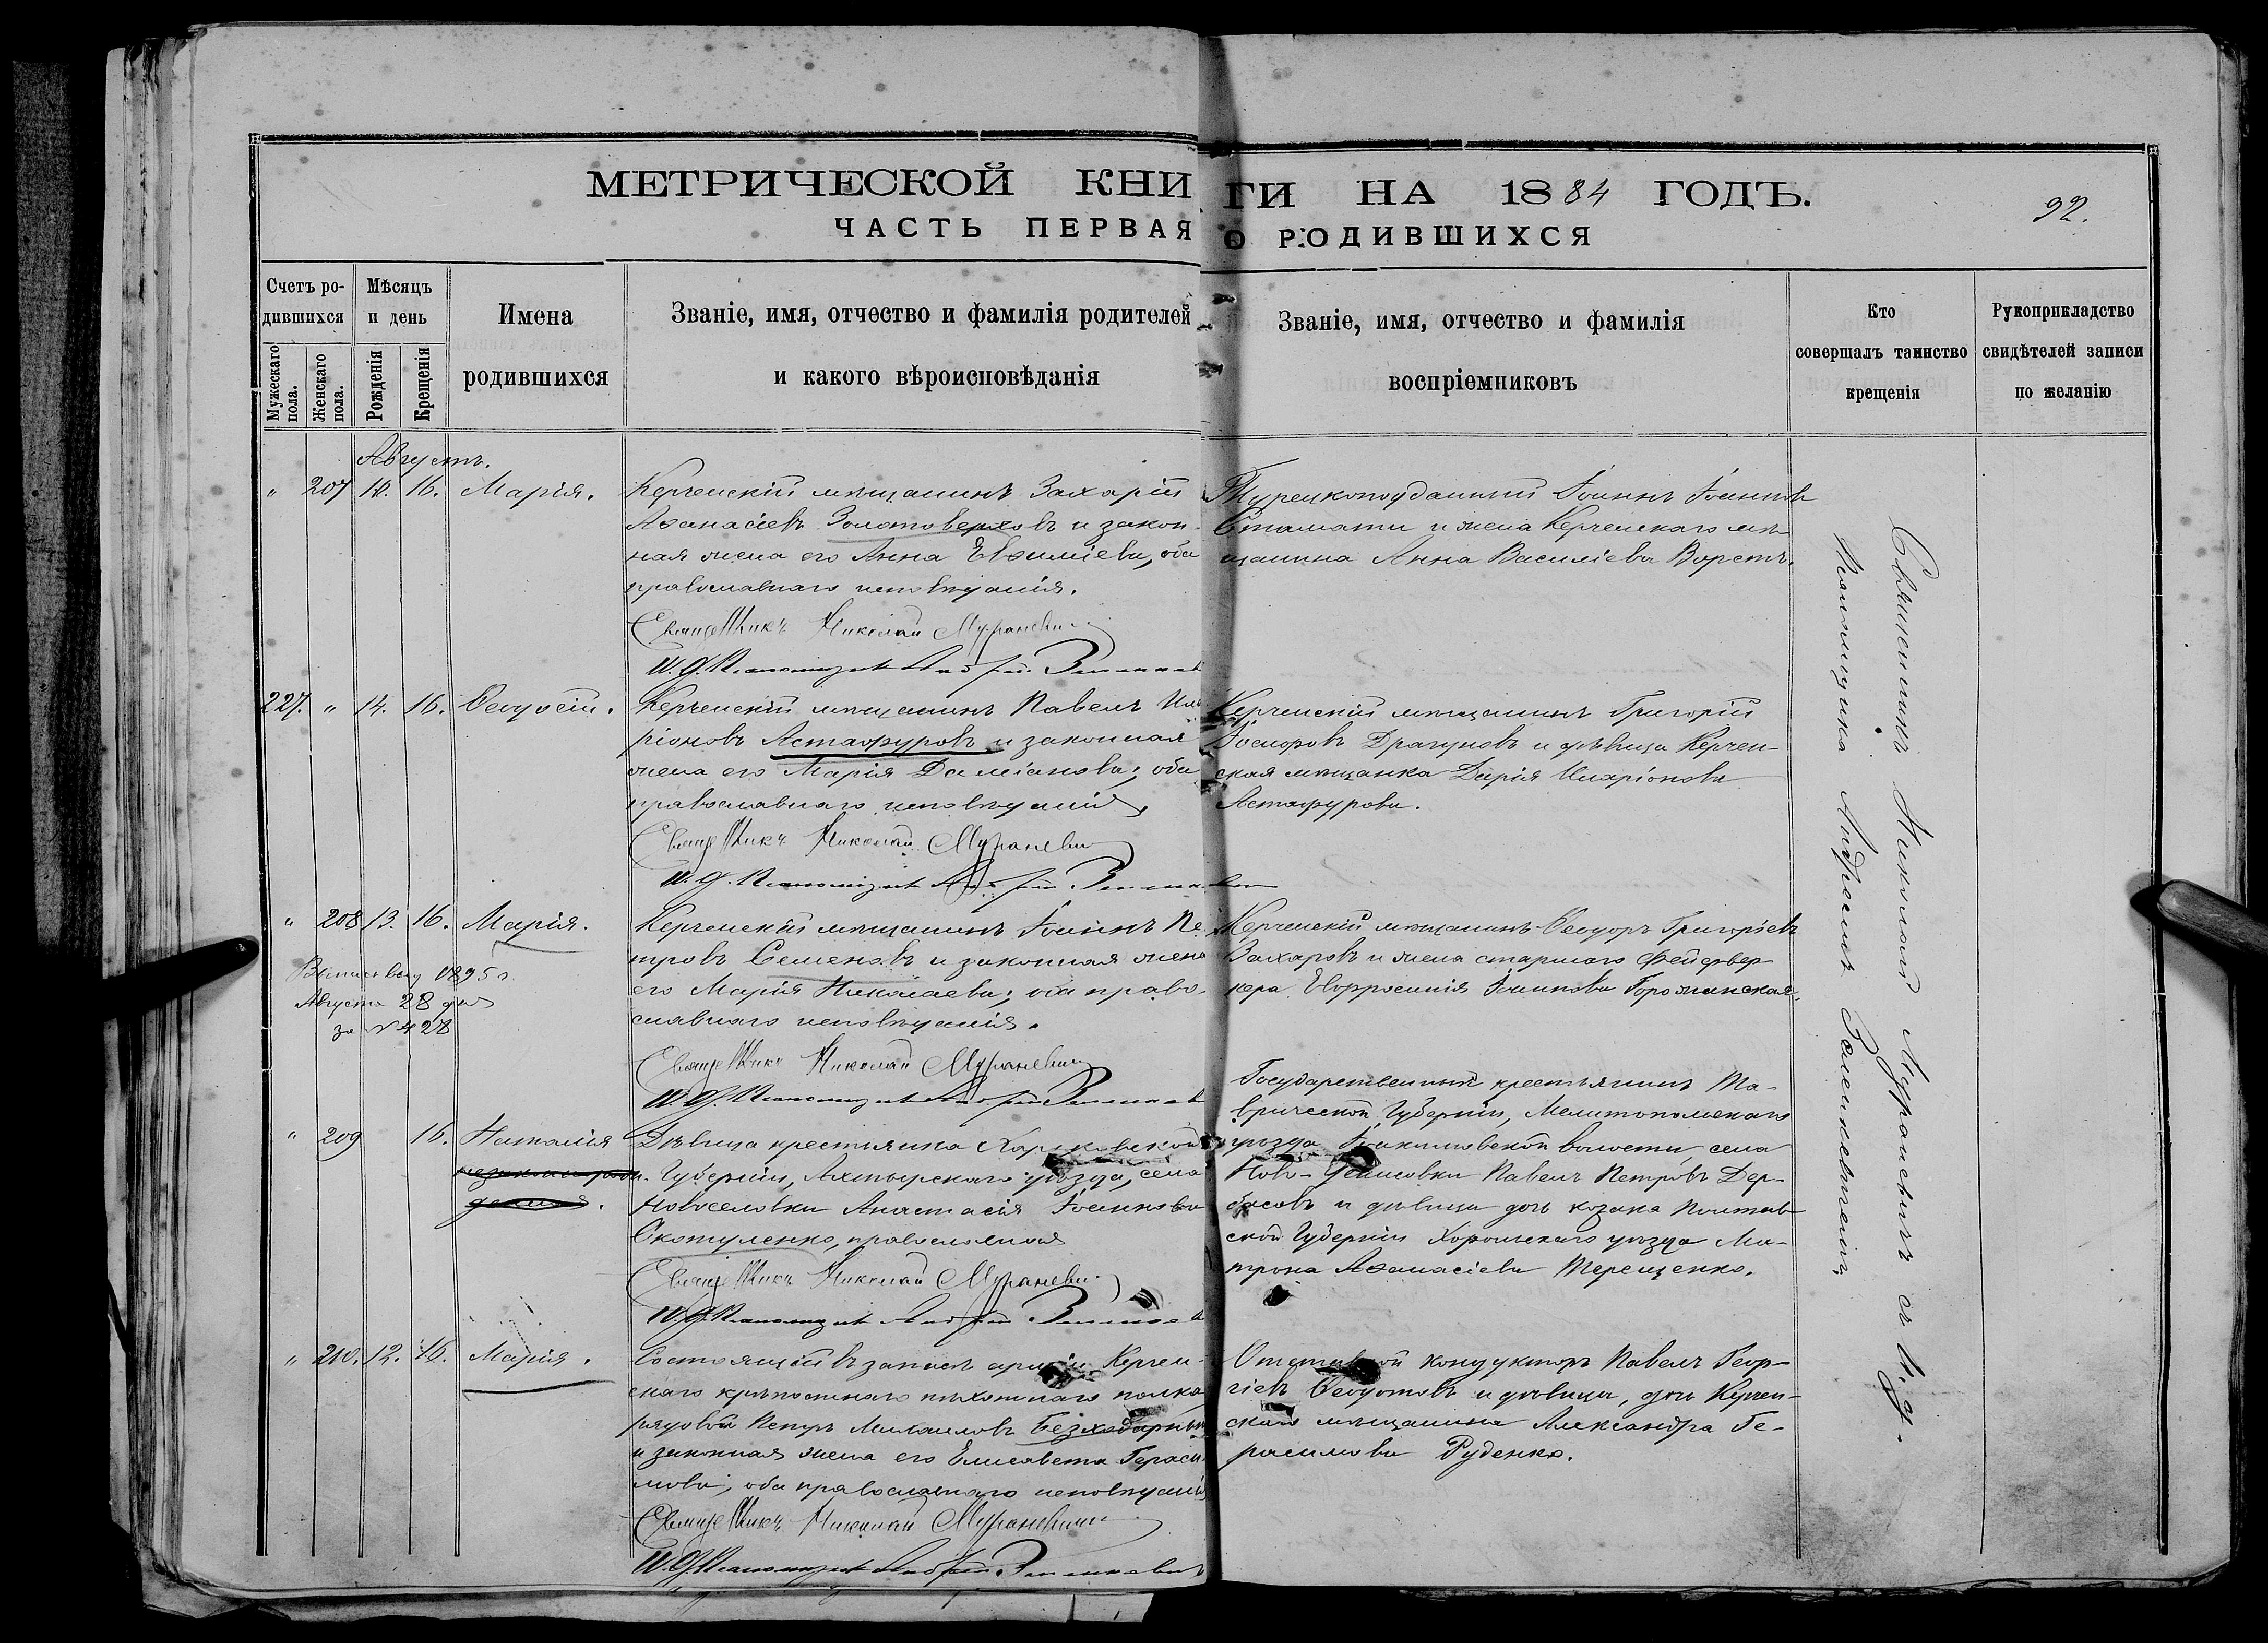 МЕТРИЧЕСКОЙ КНИГИ НА 1884 ГОДЪ.
92.
ЧАСТЬ ПЕРВАЯ О РОДИВШИХСЯ
Счетъ родившихся
Мужескаго пола.
Женскаго пола.
Мѣсяцъ и день
Рожденія
Крещенія
Имена родившихся
Званіе, имя, отчество и фамилія родителей
и какого вѣроисповѣданія
Званіе, имя, отчество и фамилія
воспріемниковъ
Кто
совершалъ таинство
крещенія
Рукоприкладство
свидѣтелей записи
по желанію
Августъ.
" 207 14. 16. Марія.
Керченскій мѣщанинъ Захарій
Аѳанасіевъ Золотоверховъ и закон-
ная жена его Анна Евѳиміева, оба
православнаго исповѣданія.
Священникъ Николай Мураневичъ
И. д. Псаломщика Андрей
Турецкоподданный Іоаннъ Іоанновъ
Стамати и жена Керченскаго мѣ-
щанина Анна Василіева Ворстъ.
227. " 14. 16. Ѳеодосій.
Керченскій мѣщанинъ Павелъ Ила-
ріоновъ Астафуровъ и законная
жена его Марія Даміанова; оба
православнаго исповѣданія.
Священникъ Николай Мураневичъ
И. д. Псаломщика Андрей
Керченскій мѣщанинъ Григорій
Іосифовъ Драгуновъ и дѣвица Керчен-
ская мѣщанка Дарія Иларіонова
Астафурова.
" 208 13. 16. Марія.
1895 г.
Августа 28 дня
за № 428
Керченскій мѣщанинъ Іоаннъ Пе-
тровъ Семеновъ и законная жена
его Марія Николаева; оба право-
славнаго исповѣданія.
Священникъ Николай Мураневичъ
И. д. Псаломщика Андрей
Керченскій мѣщанинъ Ѳеодоръ Григоріевъ
Захаровъ и жена старшаго фейервер-
кера Евфросинія Іоаннова Горожанская.
" 209 16. Наталія
незаконнорож-
денная.
Дѣвица крестьянка Харьковской
Губерніи, Ахтырскаго уѣзда, села
Новоселовки Анастасія Іоаннова
Окотуленко, православная
Священникъ Николай Мураневичъ
И. д. Псаломщика Андрей
Государственный крестьянинъ Та-
врической Губерніи, Мелитопольскаго
уѣзда волости, села
Ново- Павелъ Петровъ Дер-
басовъ и дѣвица дочь козака Полтав-
ской Губерніи Хорольскаго уѣзда Ма-
трона Аѳанасіева Терещенко.
" 210. 12. 16. Марія.
Состоящій въ запасѣ арміи Керчен-
скаго крѣпостнаго пѣхотнаго полка
рядовой Петръ Михаиловъ Безходарный
и законная жена его Елисавета Гераси-
мова; оба православнаго исповѣданія
Священникъ Николай Мураневичъ
И. д. Псаломщика Андрей
Отставной кондукторъ Павелъ Геор-
гіевъ Ѳеодотовъ и дѣвица, дочь Керчен-
скаго мѣщанина Александра Ге-
расимова Руденко.
Священникъ Николай Мураневичъ съ И. д.
Псаломщика Андреемъ